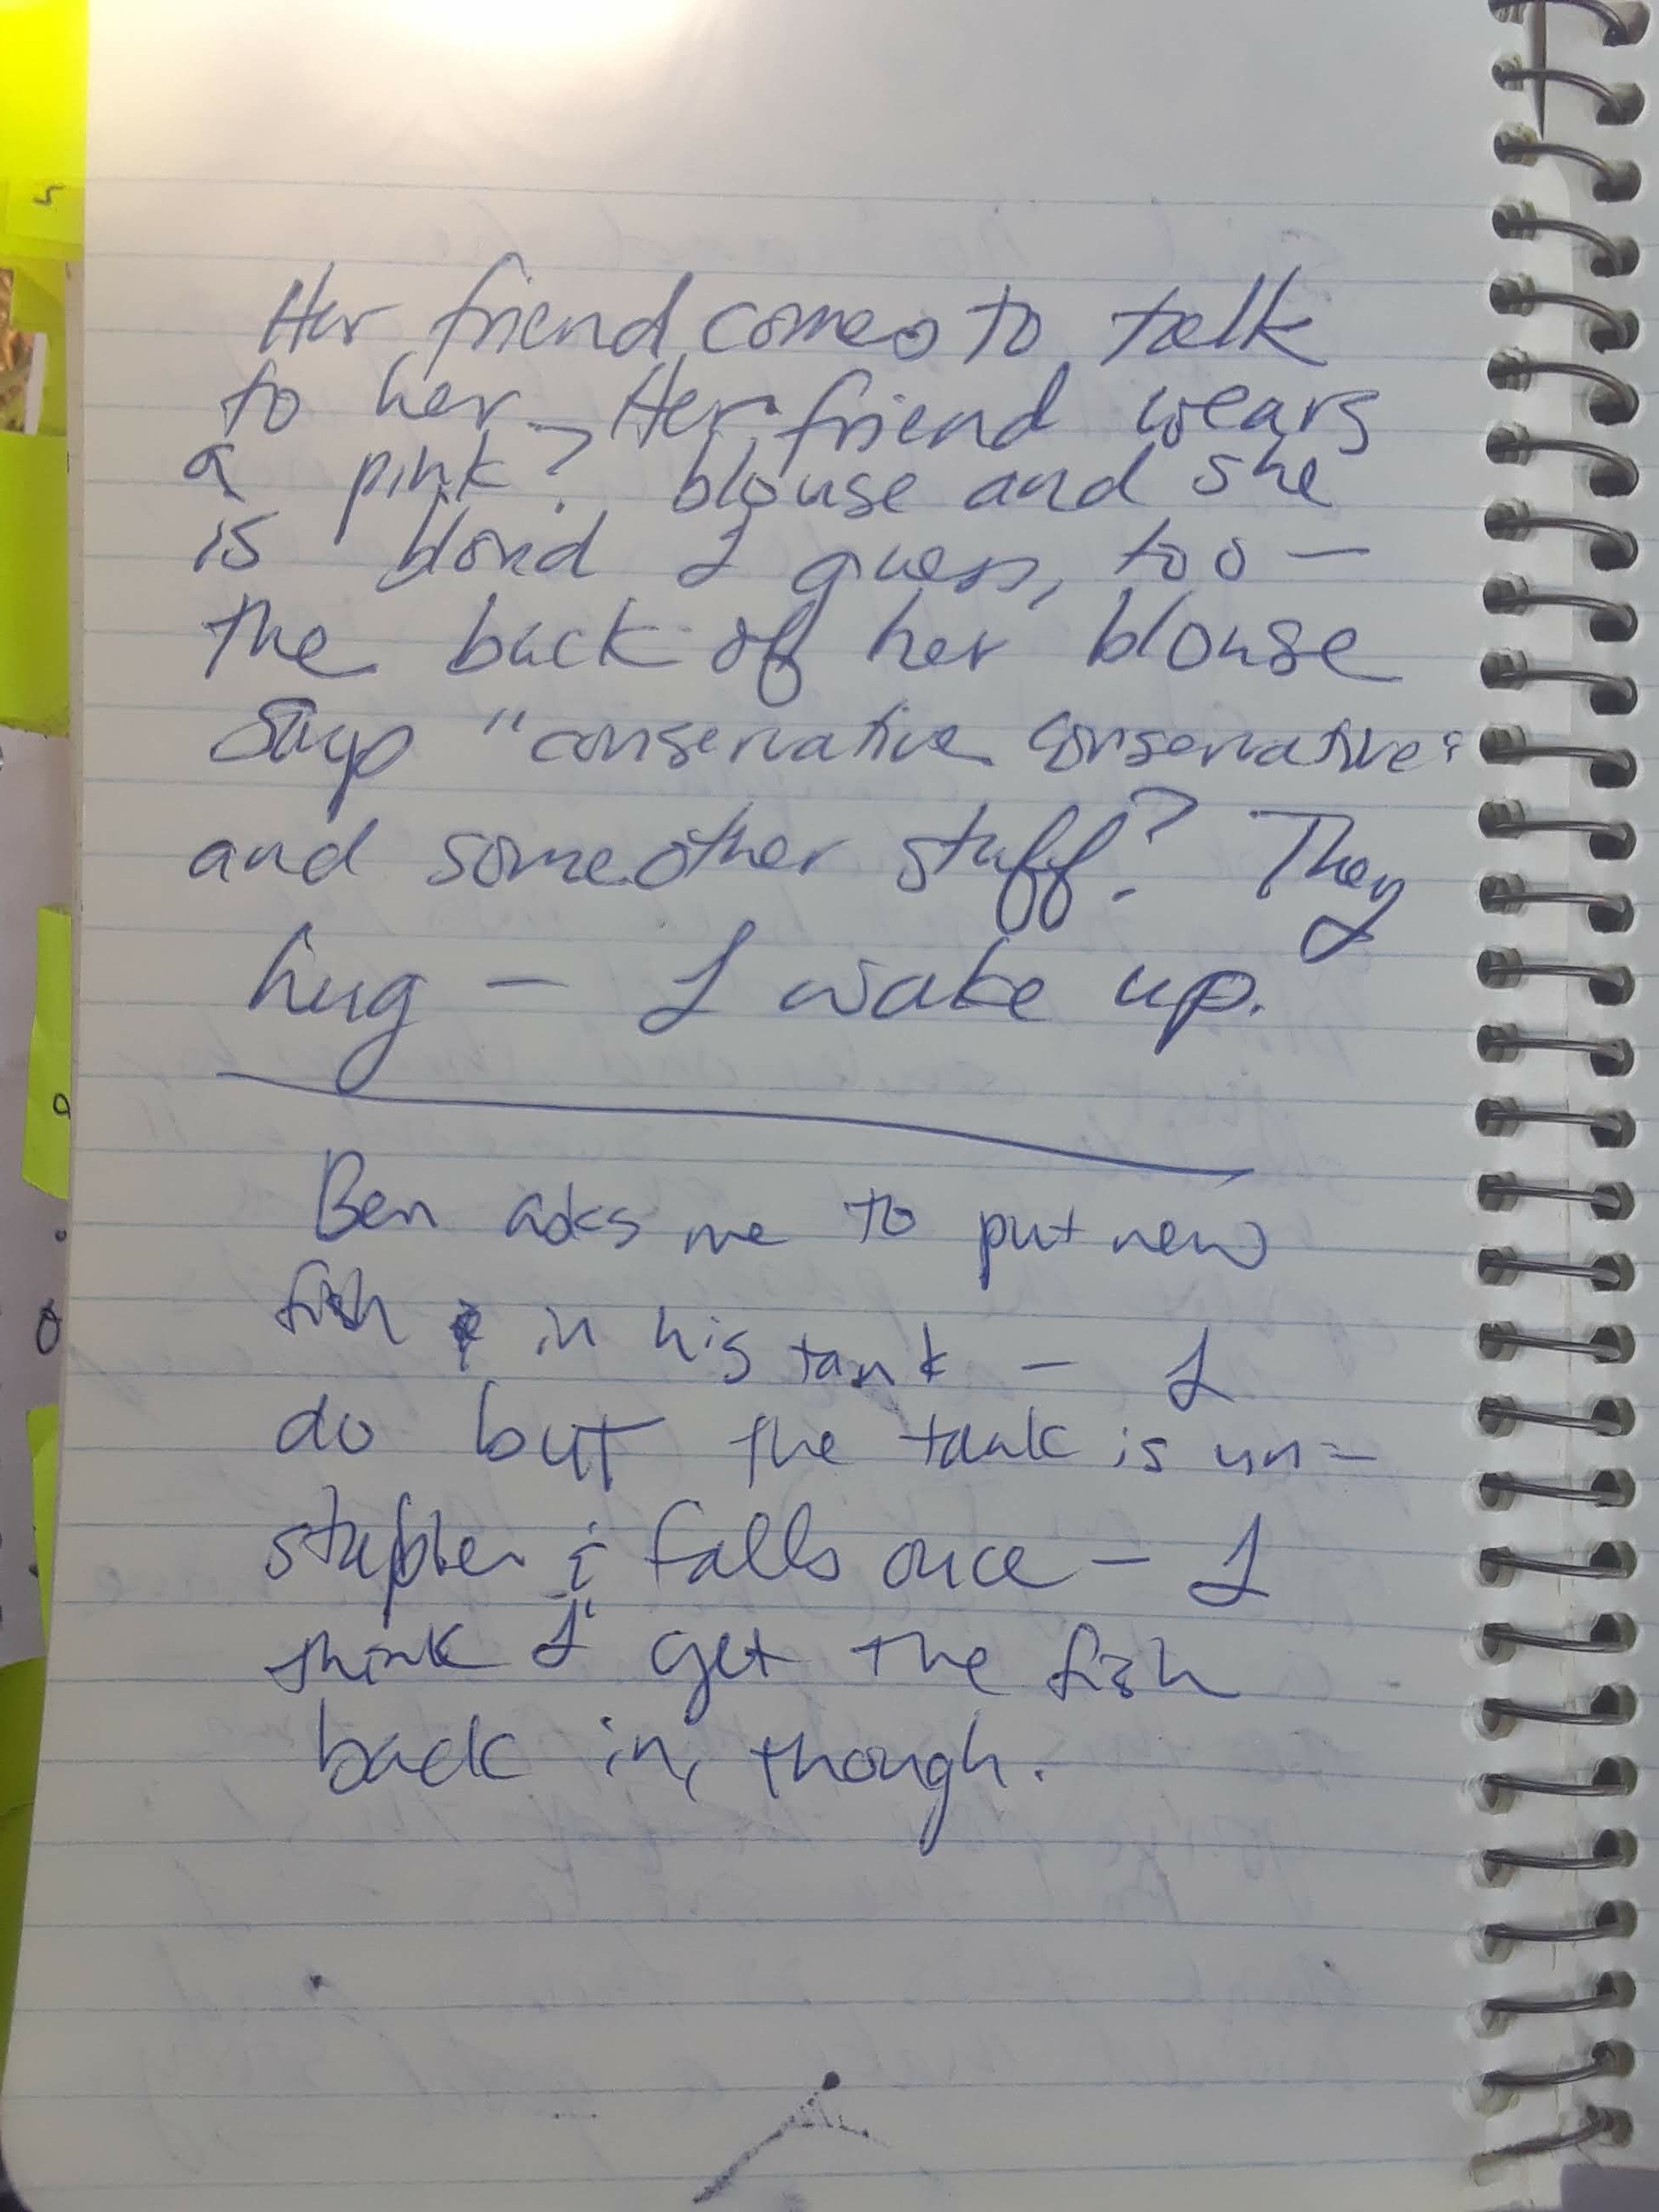 Her friend comes to talk
to her – Her friend wears
a pink? blouse and she
is blond I guess, too –
the back of her blouse
says "conservative conservative"
and some other stuff? They
hug – I wake up.
Ben asks me to put new
fish in his tank – I
do but the tank is un-
stable & falls once – I
think I get the fish
back in, though.